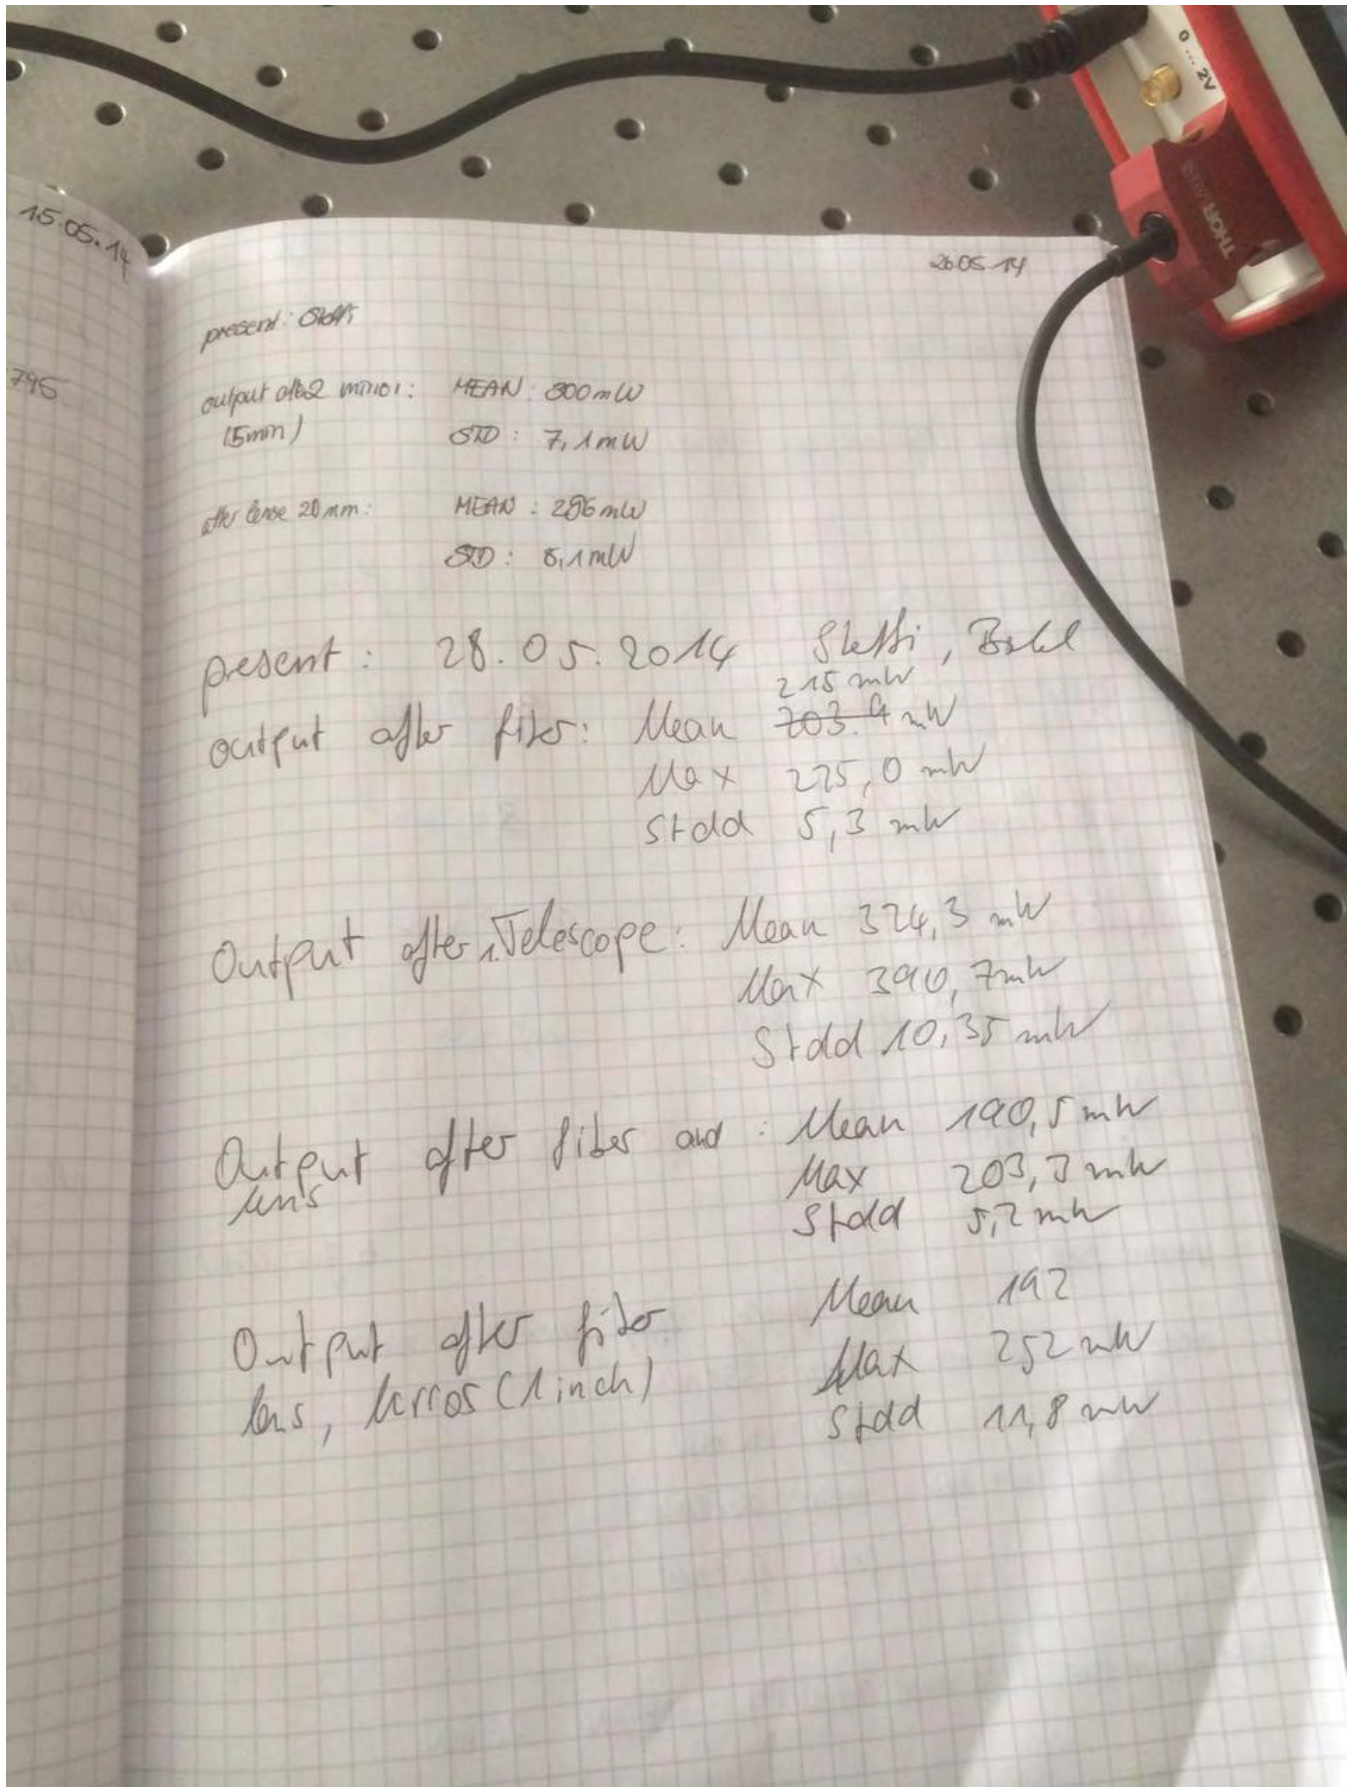 15.05.14
795
0 ... 2V
THORLABS
26.05.14
present: Steffi
output after 2 mirror: MEAN: 300mW
(5min) STD: 7,1mW
after lense 20mm: MEAN: 296mW
STD: 8,1mW
present: 28.05.2014 Steffi,
215 mW
output after fiber: Mean 203.9 mW
Max 225,0 mW
Stdd 5,3 mW
Output after 1.Telescope: Mean 324,3 mW
Max 390,7mW
Stdd 10,35 mW
Output after fiber and : Mean 190,5 mW
lens Max 203,3 mW
Stdd 5,2 mW
Output after fiber Mean 192
lens, Mirror (1inch) Max 252 mW
Stdd 11,8 mW